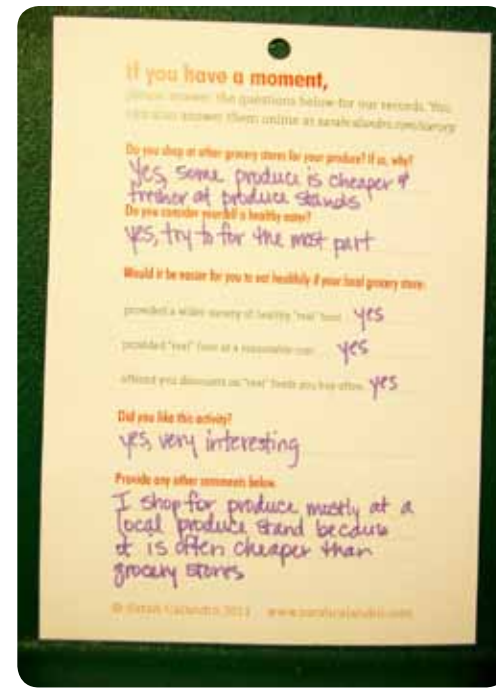 If you have a moment,
please answer the questions below for our records. You
can also answer them online at sarahcalandro.com/survey
Do you shop at other grocery stores for your produce? If so, why?
Yes, some produce is cheaper &
fresher at produce stands
Do you consider yourself a healthy eater?
yes, try to for the most part
Would it be easier for you to eat healthily if your local grocery store:
provided a wider variety of healthy "real" food yes
provided "real" food at a reasonable cost yes
offered you discounts on "real" foods you buy often yes
Did you like this activity?
yes, very interesting
Provide any other comments below
I shop for produce mostly at a
local produce stand because
it is often cheaper than
grocery stores
© Sarah Calandro 2011 www.sarahcalandro.com